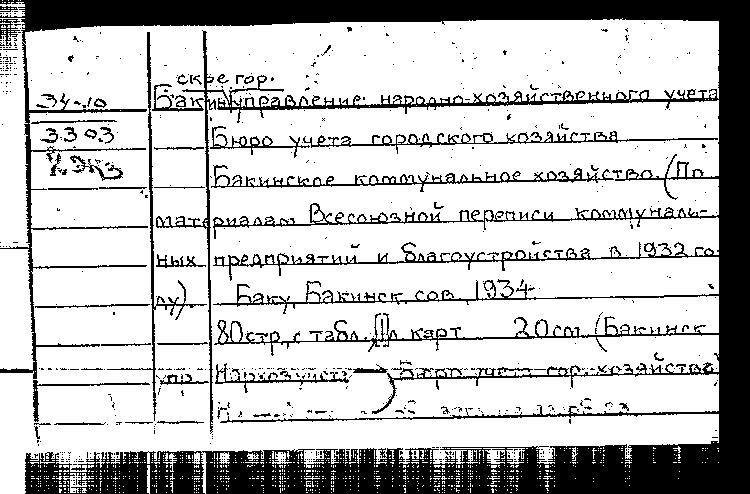 ское гор.
34-10 Бакин управление народно-хозяйственного учета
3303 Бюро учета городского хозяйства
2 экз Бакинское коммунальное хозяйство. (По
материалам Всесоюзной переписи коммуналь-
ных предприятий и благоустройства в 1932 го-
ду). Баку, Бакинск. сов. 1934.
80 стр. с табл., л. карт. 20 см. (Бакинск
упр. Нархозучета) Бюро учета гор. хозяйства